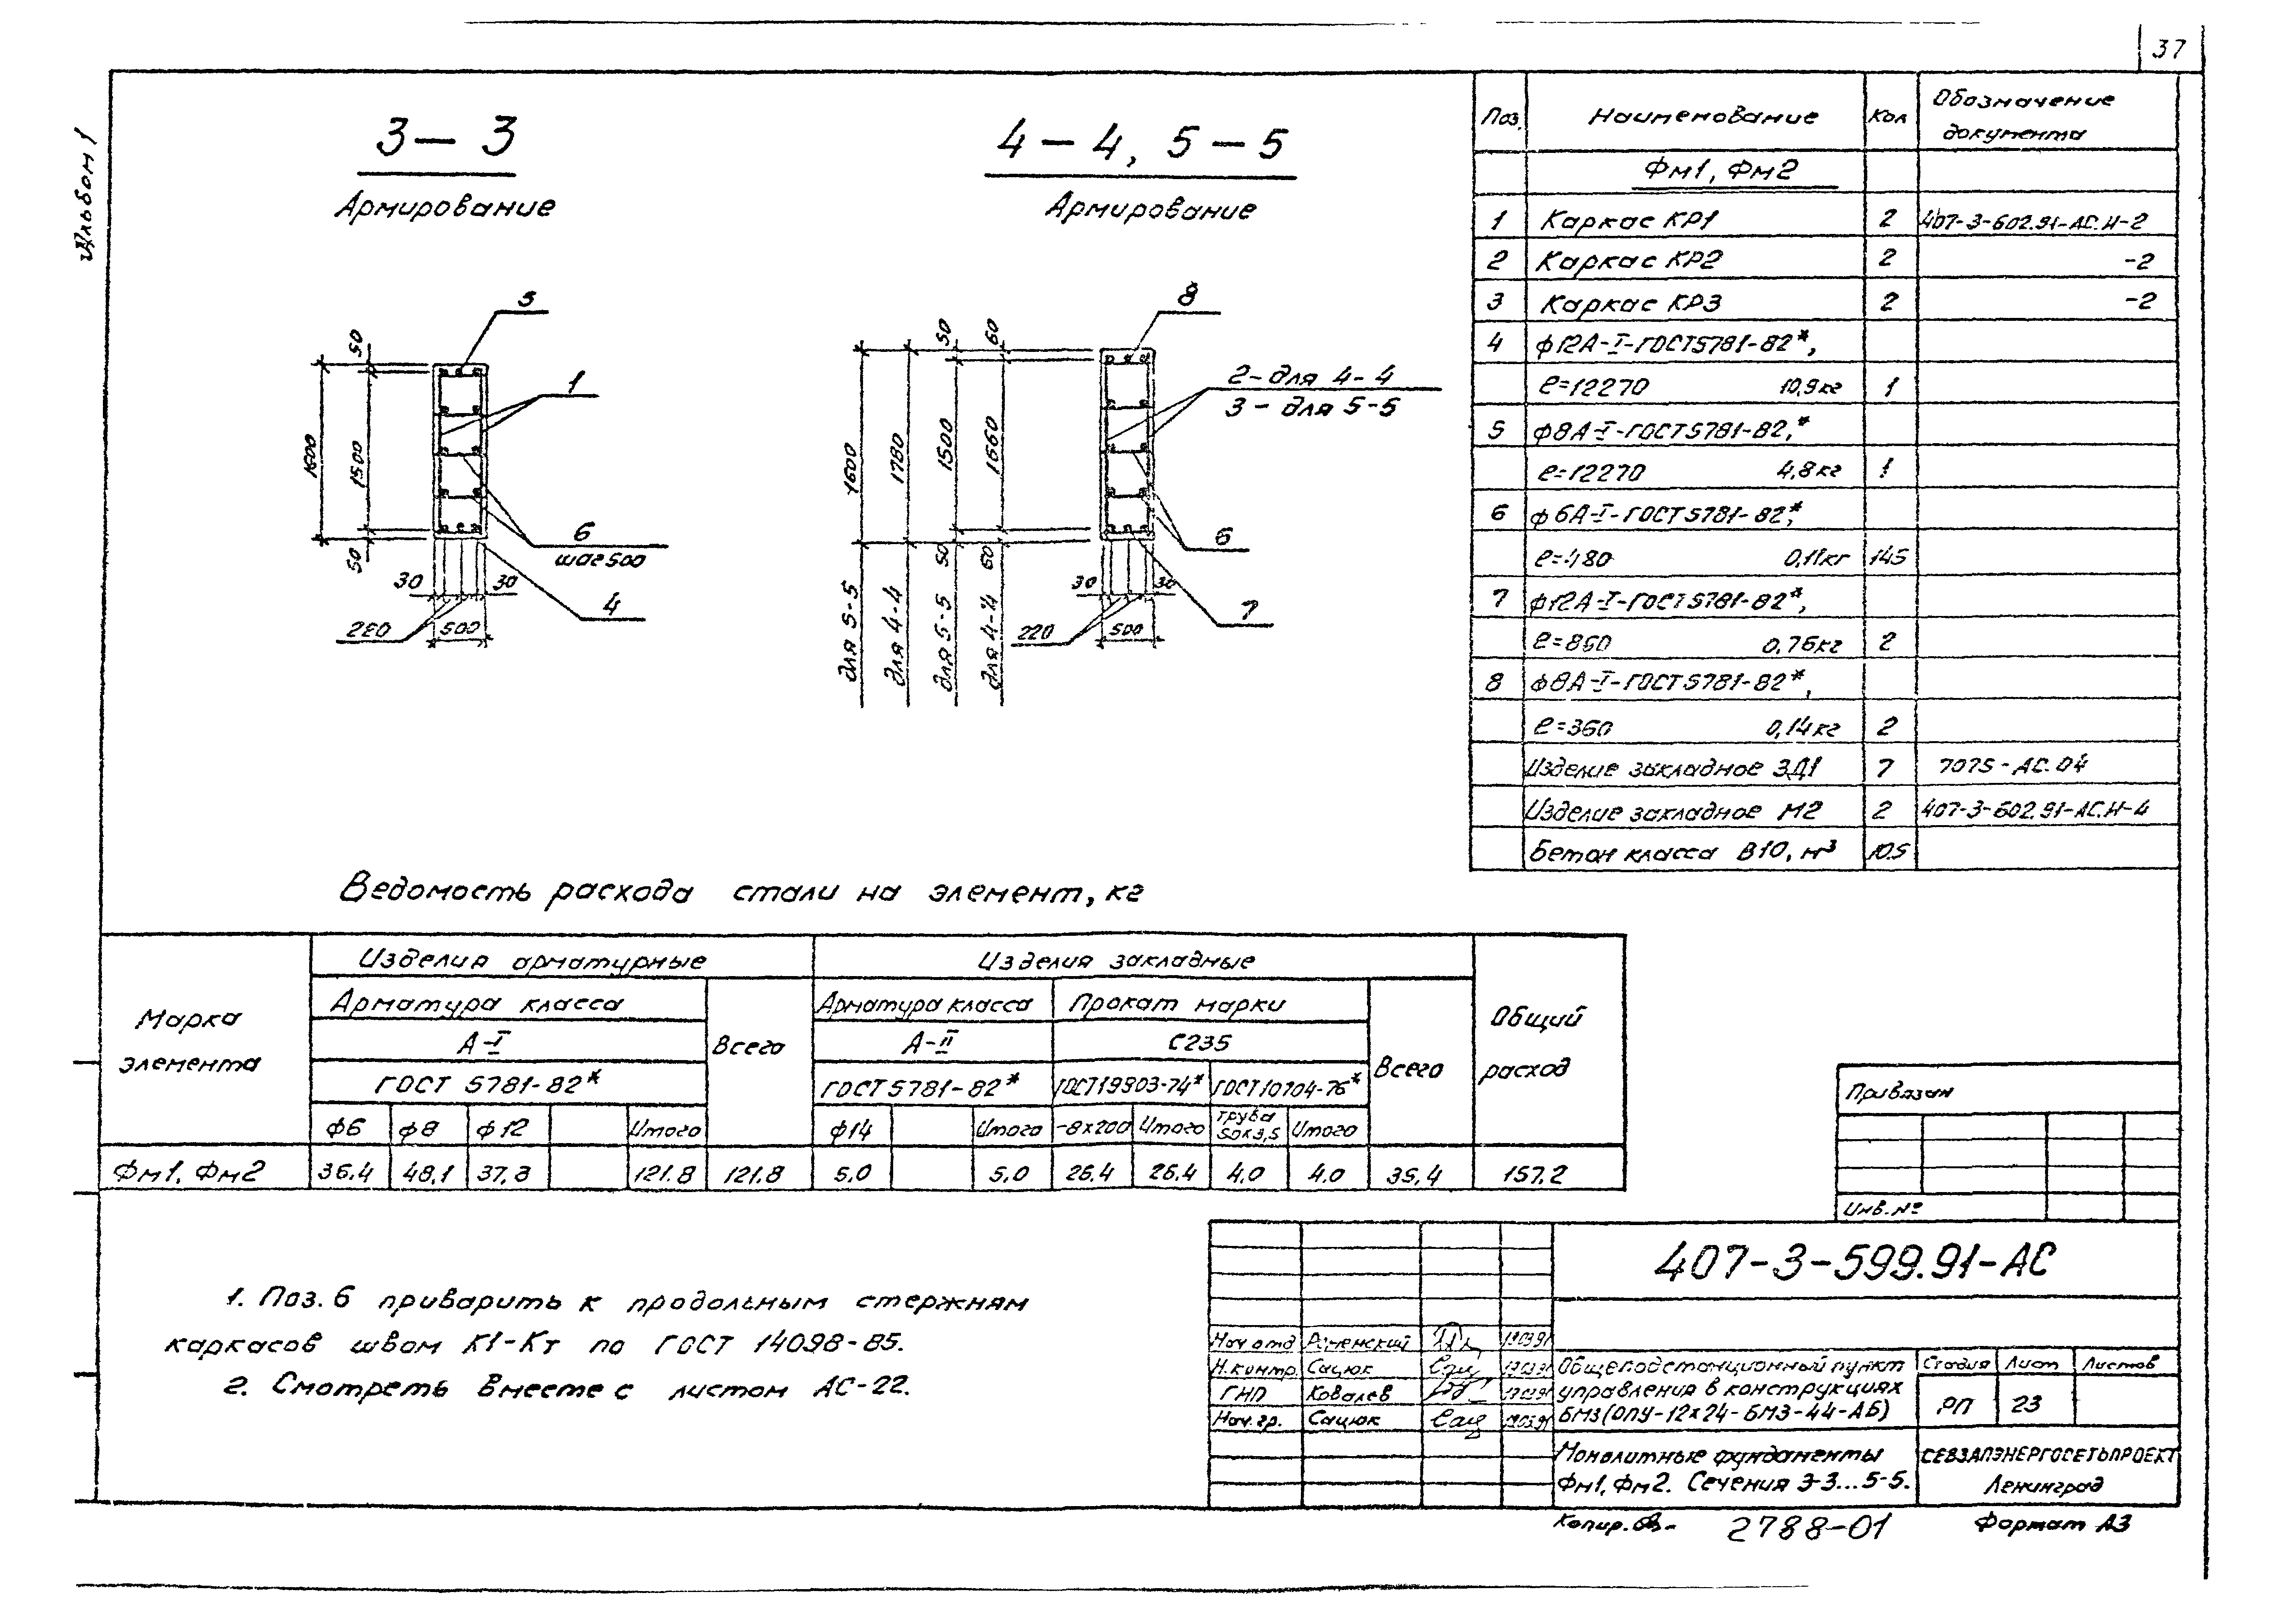 37
Альбом 1
3-3
Армирование
5
1
50
1600
1500
50
6
шаг 500
30
30
4
500
4-4, 5-5
Армирование
8
50
60
2-для 4-4
3-для 5-5
1600
1780
1500
1660
6
50
60
30
30
7
220
500
для 5-5
для 4-4
для 5-5
для 4-4
Поз. Наименование Кол Обозначение документа
Фм1, Фм2
1 Каркас КР1 2 407-3-602.91-АС.И-2
2 Каркас КР2 2 -2
3 Каркас КР3 2 -2
4 ф12А-I-ГОСТ5781-82*,
ℓ=12270 10,9кг 1
5 ф8А-I-ГОСТ5781-82,*
ℓ=12270 4,8кг 1
6 ф6А-I-ГОСТ5781-82,*
ℓ=480 0,11кг 145
7 ф12А-I-ГОСТ5781-82*,
ℓ=860 0,76кг 2
8 ф8А-I-ГОСТ5781-82*,
ℓ=360 0,14кг 2
Изделие закладное ЗД1 7 7075-АС.04
Изделие закладное М2 2 407-3-602.91-АС.И-4
Бетон класса В10, м³ 10.5
Ведомость расхода стали на элемент, кг
Марка элемента
Изделия арматурные
Изделия закладные
Общий расход
Арматура класса
Всего
Арматура класса
Прокат марки
Всего
А-I
А-II
С235
ГОСТ 5781-82*
ГОСТ5781-82*
ГОСТ19903-74*
ГОСТ10704-76*
ф6 ф8 ф12 Итого ф14 Итого -8х200 Итого труба 50х3,5 Итого
Фм1, Фм2 36,4 48,1 37,3 121.8 121.8 5.0 5.0 26.4 26.4 4.0 4.0 35,4 157.2
1. Поз. 6 приварить к продольным стержням
каркасов швом К1-Кт по ГОСТ 14098-85.
2. Смотреть вместе с листом АС-22.
Привязан
Инв.№
407-3-599.91-АС
Нач отд
Н.контр. Сацюк
ГИП Ковалев
Нач. гр. Сацюк
Общеподстанционный пункт
управления в конструкциях
БМЗ(ОПУ-12х24-БМЗ-44-АБ)
Стадия Лист Листов
РП 23
Монолитные фундаменты
Фм1, Фм2. Сечения 3-3...5-5.
СЕВЗАПЭНЕРГОСЕТЬПРОЕКТ
Ленинград
Копир.
2788-01
Формат А3